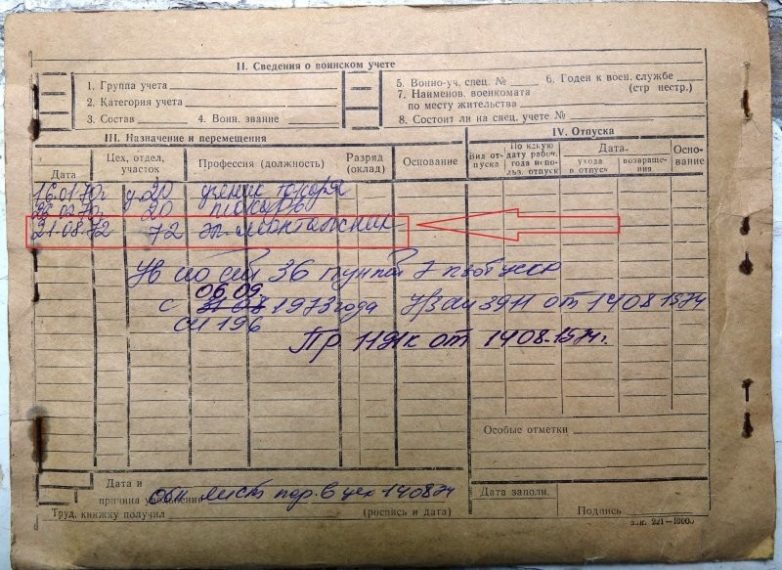 II. Сведения о воинском учете
1. Группа учета
2. Категория учета
3. Состав 4. Воин. звание
5. Военно-уч. спец. № 6. Годен к воен. службе
(стр. нестр.)
7. Наименов. военкомата
по месту жительства
8. Состоит ли на спец. учете №
III. Назначение и перемещения
Дата Цех, отдел, участок Профессия (должность) Разряд (оклад) Основание
16.01.70г 20 ученик токаря
20 токарь
21.08.72 72 эл. монтажник
Ув по ст 36 пункт 7
06.09
с 1973 года от 14 08 1974
СЦ 196
Пр 119к от 14 08.1974г.
IV. Отпуска
Вид отпуска По какую дату рабоч. года использ. отпуск Дата Основание
ухода в отпуск возвращения
Особые отметки
Дата и
причина увольнения обх лист пер. в цех 140874
Труд. книжку получил (роспись и дата)
Дата заполн.
Подпись